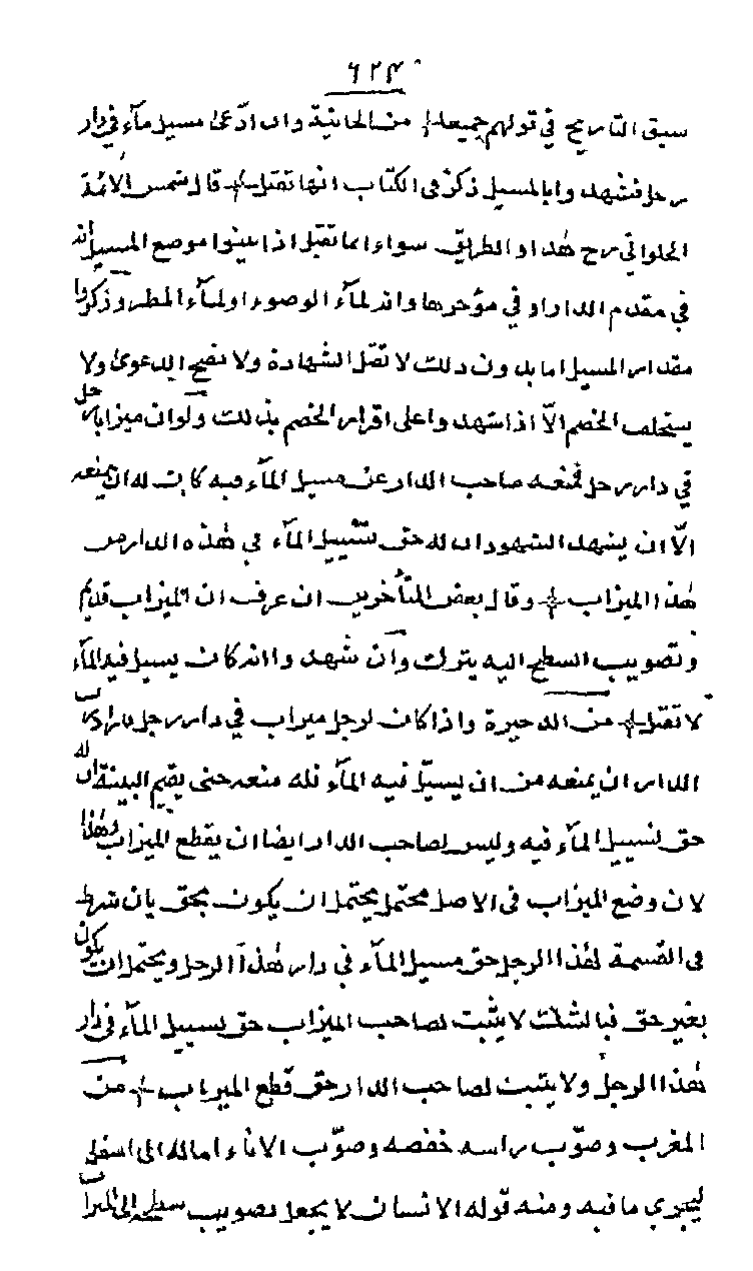 ٦٢٣
سبق التاريخ في قولهم جميعا من الخانية وان ادعى مسيل مآء في دار
رجل فشهدوا بالمسيل ذكر في الكتاب انها تقبل قال شمس الأئمة
الحلواني رح هذا والطريق سواء انما تقبل اذا بينوا موضع المسيل انه
في مقدم الدار او في مؤخرها وانه لمآء الوضوء او لمآء المطر وذكروا
مقدار المسيل اما بدون ذلك لا تقبل الشهادة ولا تصح الدعوى ولا
يستحلف الخصم الّا اذا شهدوا على اقرار الخصم بذلك ولو ان ميزابا لرجل
في دار رجل فمنعه صاحب الدار عن مسيل المآء فيه كان له ان يمنعه
الّا ان يشهد الشهود ان له حق تسييل المآء في هذه الدار من
هذا الميزاب وقال بعض المتأخرين ان عرف ان الميزاب قديم
وتصويب السطح اليه يترك وان شهدوا انه كان يسيل فيه المآء
لا تقبل من الذخيرة واذا كان لرجل ميزاب في دار رجل فاراد رب
الدار ان يمنعه من ان يسيّل فيه المآء فله منعه حتى يقيم البينة ان له
حق تسييل المآء فيه وليس لصاحب الدار ايضا ان يقطع الميزاب وهذا
لان وضع الميزاب في الاصل محتمل يحتمل ان يكون بحق بان شرط
في القسمة لهذا الرجل حق مسيل المآء في دار هذا الرجل ويحتمل ان يكون
بغير حق فبالشك لا يثبت لصاحب الميزاب حق تسييل المآء في دار
هذا الرجل ولا يثبت لصاحب الدار حق قطع الميزاب من
المغرب وصوّب راسه خفضه وصوّب الاناء اماله الى اسفل
ليجري ما فيه ومنه قوله الانسان لا يجعل تصويب سطحه الى الميزاب